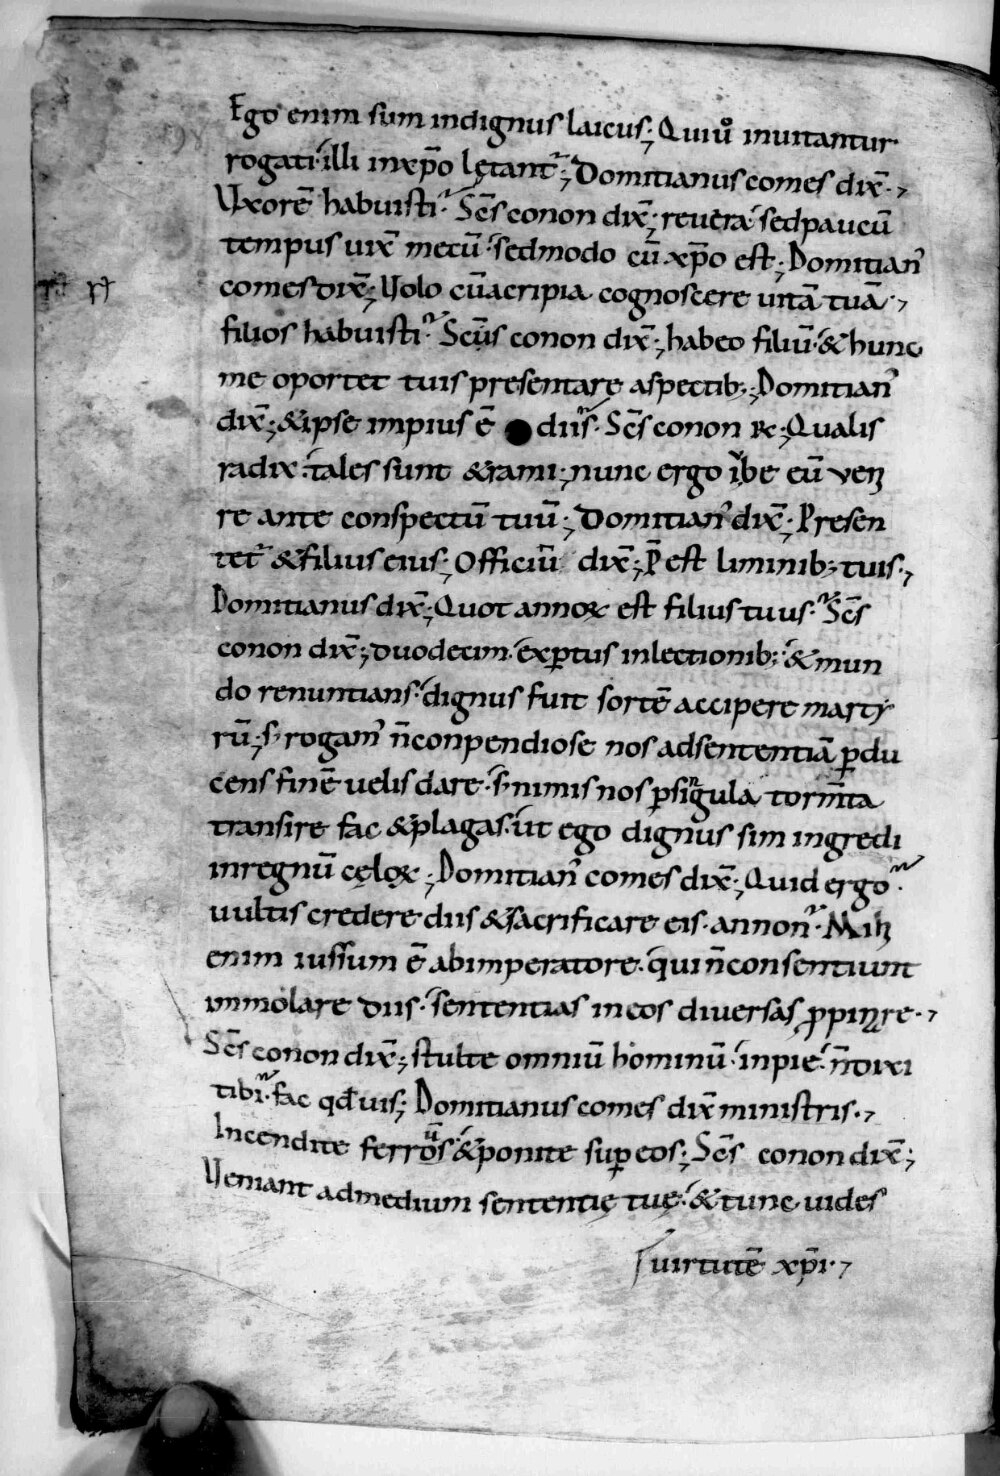 Ego enim sum indignus laicus; Qui uͦ inuitantur
rogati illi inxp̄o lętant᷑; Domitianus comes dix̄.,
Uxorē habuisti; Sc̄s conon dix̄; reuera sedpaucū
tempus uix̄ mecū. sedmodo cū xp̄o est; Domitian᾽
comes dix̄; Uolo cūacripia cognoscere uitā tuā.,
filios habuisti. Sc̄s conon dix̄; habeo filiū. & hunc
me oportet tuis presentare aspectib;; Domitian᾽
dix̄; &ipse impius ē diis. Sc̄s conon R; Qualis
radix. tales sunt &rami; nunc ergo iube eū veni
re ante conspectū tuū; Domitian᾽ dix̄; Presen
tet᷑ &filius eius; Officiū dix̄; P̄ est liminib; tuis.,
Domitianus dix̄; Quot annoꝝ est filius tuus. Sc̄s
conon dix̄; duodecim. exꝑtus inlectionib; & mun
do renuntians. dignus fuit sortē accipere marty
rū; s; rogam᾽ n̄conpendiose nos adsententiā ꝑdu
cens finē uelis dare. s; nimis nos ꝑsingula torm̄ta
transire fac &plagas. ut ego dignus sim ingredi
inregnū cęloꝝ; Domitian᾽ comes dix̄; Quid ergo.
uultis credere diis &sacrificare eis. annon. Mihi
enim iussum ē abimperatore. qui n̄consentiunt
immolare diis. sententias in eos diuersas ꝓpinare.,
Sc̄s conon dix̄; stulte omniū hominū. inpie. n̄dixi
tibi. fac qd̄ uis; Domitianus comes dix̄ ministris.,
Incendite ferrū &ponite suꝑ eos; Sc̄s conon dix̄;
Ueniant admedium sententię tuę. & tunc uides
uirtutē xp̄i.,